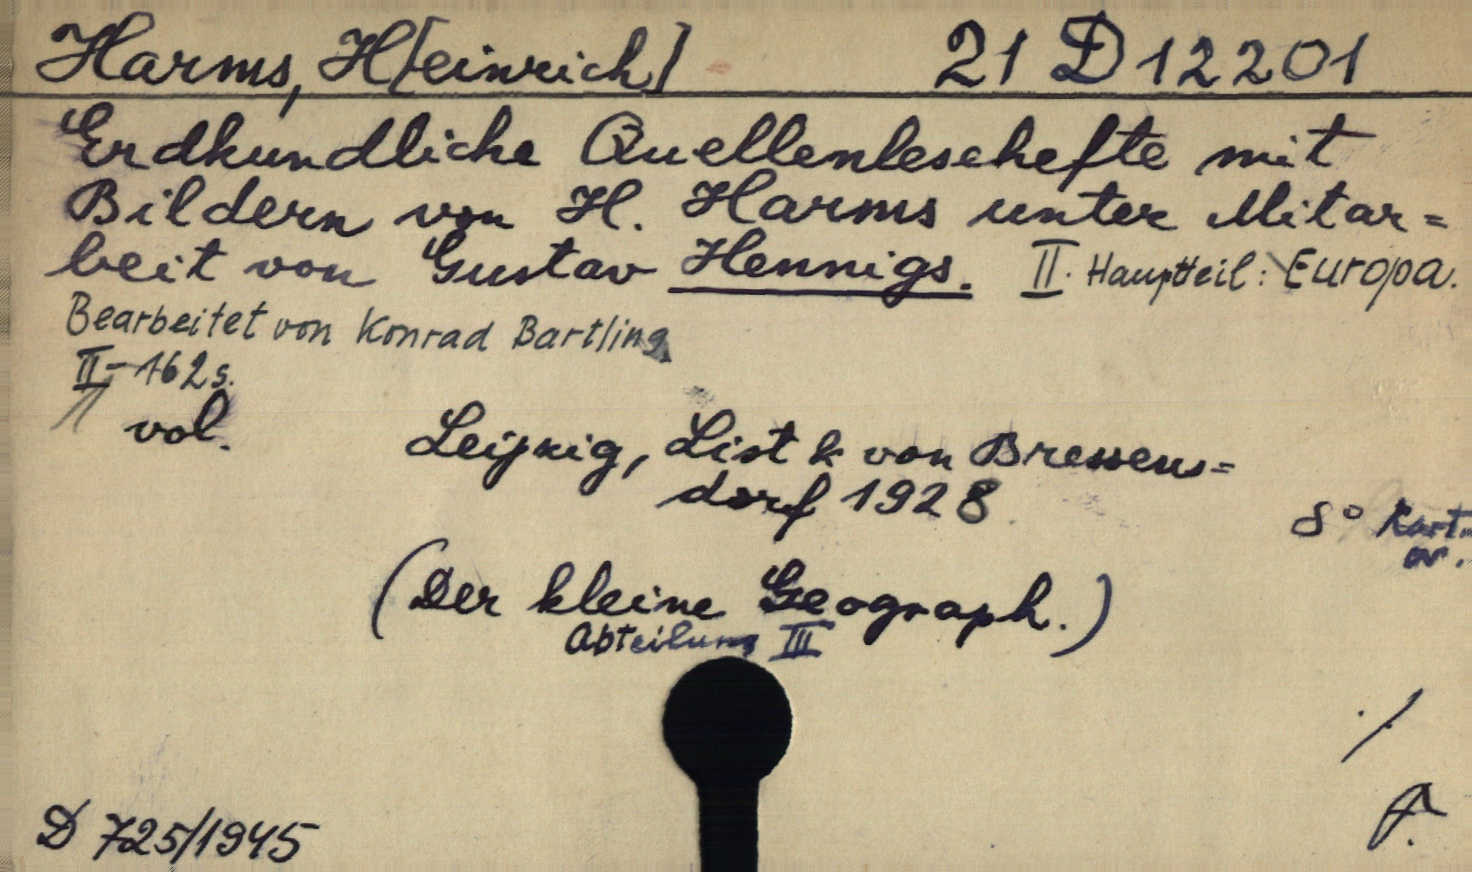 Harms, H[einrich] 21 D 12201
Erdkundliche Quellenlesehefte mit
Bildern von H. Harms unter Mitar=
beit von Gustav Hennigs. II. Hauptteil: Europa.
Bearbeitet von Konrad Bartling
II - 162 s.
1 vol.
Leipzig, List & von Bressens=
dorf 1928
8° Kart.
(Der kleine Geograph.)
Abteilung III
D 725/1945